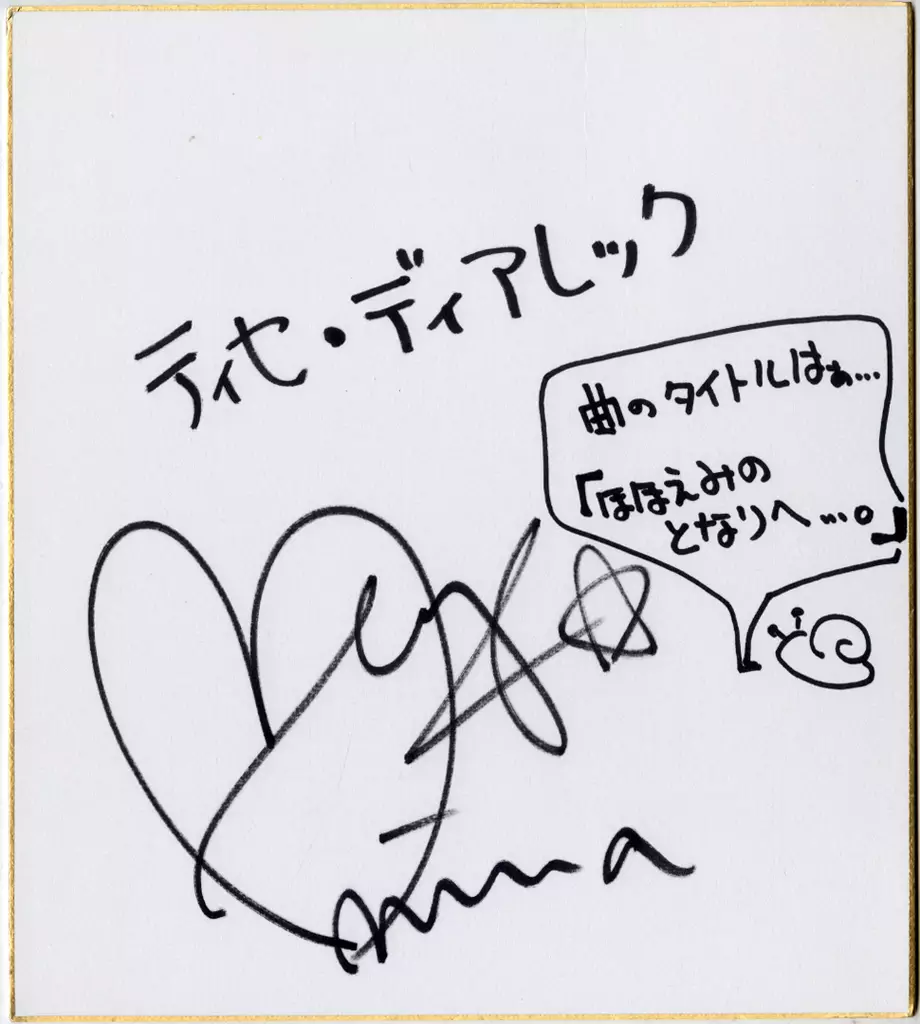 ティセ・ディアレック
曲のタイトルはぁ…
「ほほえみの
となりへ…。」